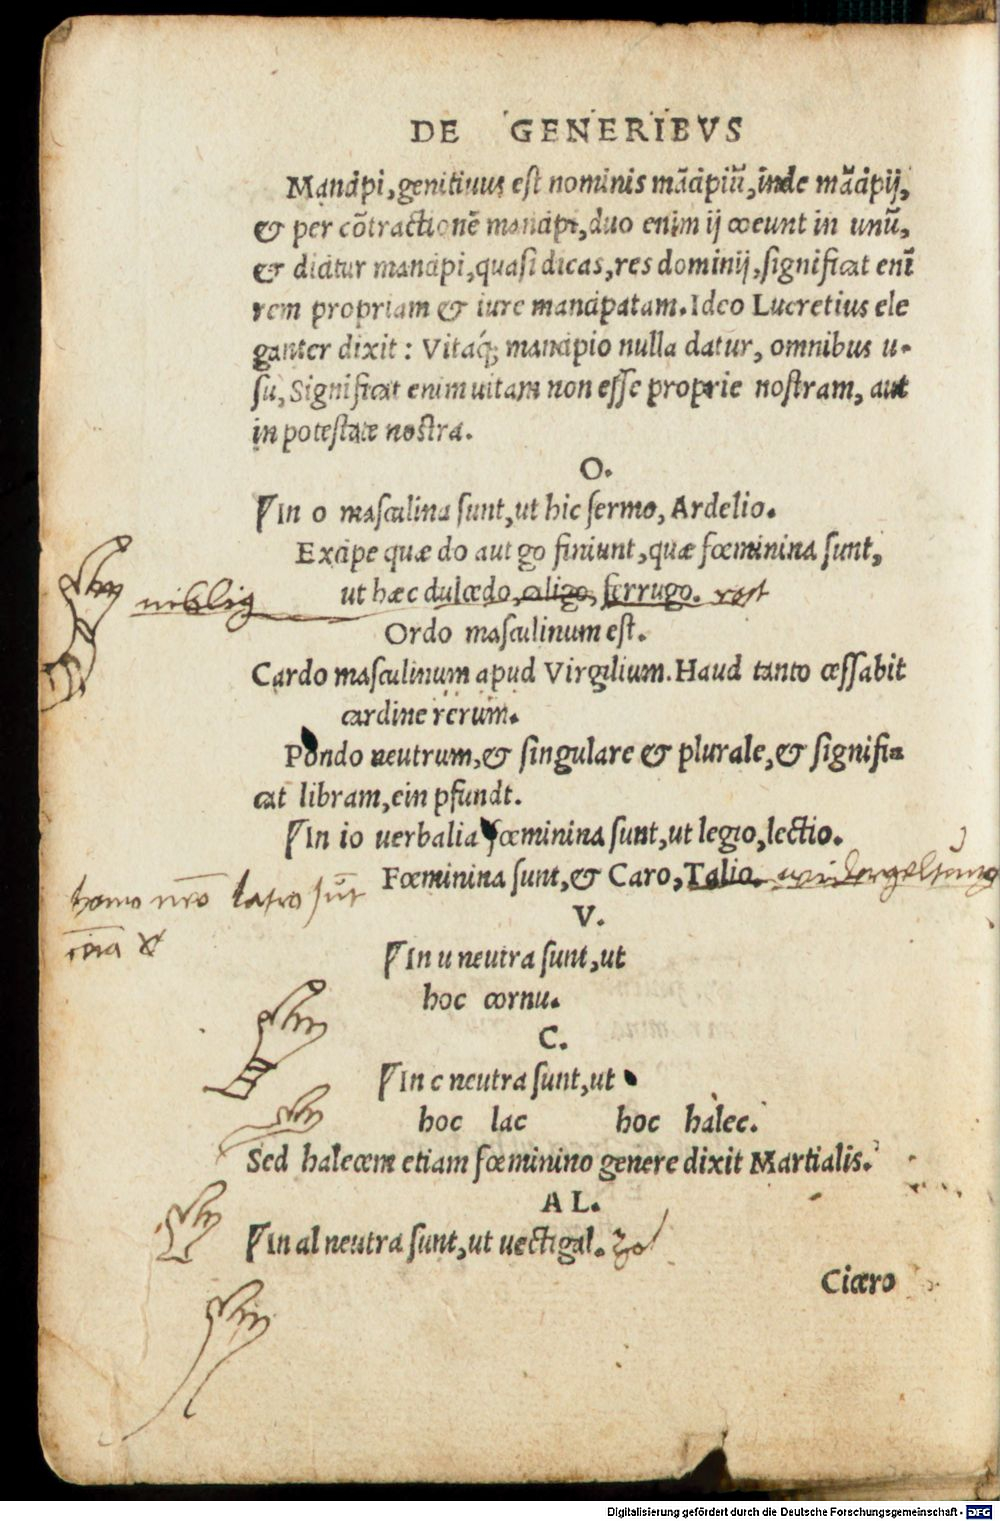 DE GENERIBVS
Mancipi, genitiuus est nominis mãcipiũ, inde mãcipij,
& per cõtractionẽ mancipi, duo enim ij coeunt in unũ,
& dicitur mancipi, quasi dicas, res dominij, significat enĩ
rem propriam & iure mancipatam. Ideo Lucretius ele
ganter dixit: Vitaq́; mancipio nulla datur, omnibus u-
su, Significat enim uitam non esse proprie nostram, aut
in potestate nostra.
O.
¶In o masculina sunt, ut hic sermo, Ardelio.
Excipe quæ do aut go finiunt, quæ fœminina sunt,
niblig ut hæc dulcedo, caligo, ferrugo. rost
Ordo masculinum est.
Cardo masculinum apud Virgilium. Haud tanto cessabit
cardine rerum.
Pondo neutrum, & singulare & plurale, & signifi-
cat libram, ein pfundt.
¶In io uerbalia fœminina sunt, ut legio, lectio.
Fœminina sunt, & Caro, Talio. widergeltung
homo latro sũt
V.
¶In u neutra sunt, ut
hoc cornu.
C.
¶In c neutra sunt, ut
hoc lac hoc halec.
Sed halecem etiam fœminino genere dixit Martialis.
AL.
¶In al neutra sunt, ut uectigal. zol
Cicero
Digitalisierung gefördert durch die Deutsche Forschungsgemeinschaft - DFG